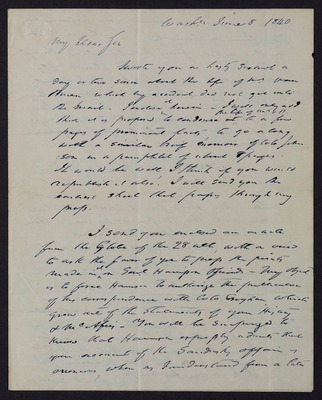 Washn June 8 1840
My Dear Sir
I wrote you a hasty scrawl a
day or two since about the life of Mr Van
Buren which by accident did not get into
the mail. I only add
that it is proposed to condense it to a few
pages of prominent facts to go along
with a similar brief memoir of Col John-
son in a pamphlet of about 8 pages.
It would be well, I think if you would
republish it also. I will send you the
earliest sheet that passes through my
press.
I send you enclosed an article
from the Globe of the 28 ult with a view
to ask the favor of you to press the points
made in on Genl Harrison's friends - My object
is to force Harrison to authorize the publication
of his correspondence with Col Croghan which
grew out of the statements of your History
& McAfee's - You will be surprised to
know that Harrison expressly admits that
your account of the Sandusky affair is
erroneous when as I understand from a late